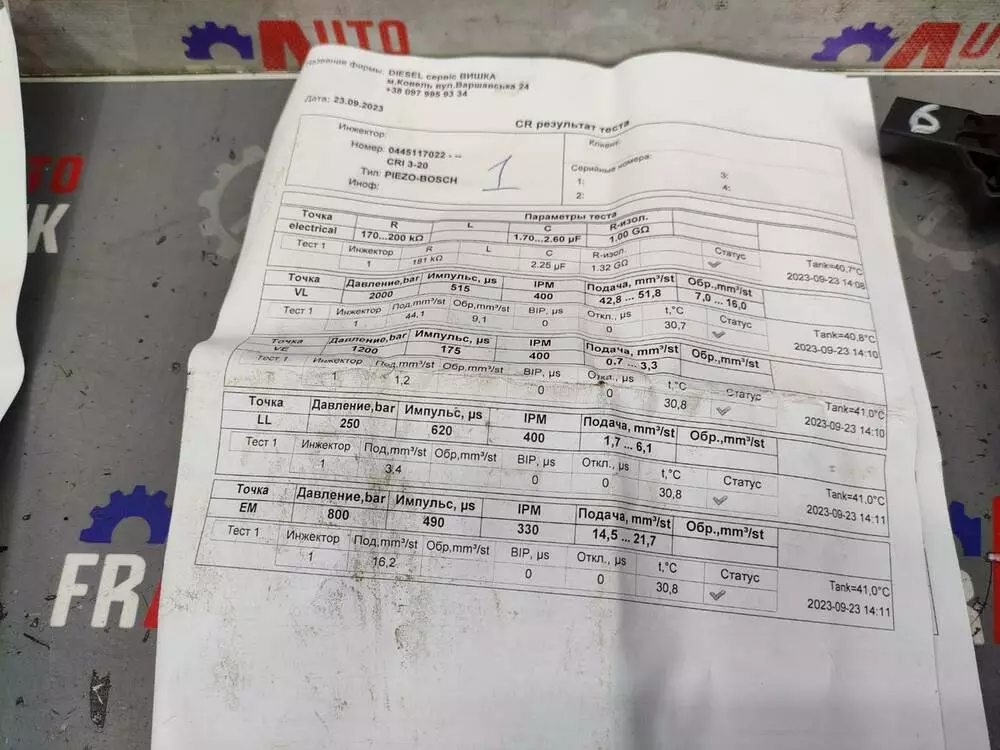 AUTO
AU
UTO
K
FR
FR
6
Название фирмы: DIESEL сервіс ВИШКА
м.Ковель вул.Варшавська 24
+38 097 995 93 34
Дата: 23.09.2023
CR результат теста
Инжектор:
Номер: 0445117022 - --
CRI 3-20
Тип: PIEZO-BOSCH
Иноф:
1
Клиент:
Серийные номера:
1: 3:
2: 4:
Точка Параметры теста
electrical R L C R-изол.
170...200 kΩ 1.70...2.60 µF 1.00 GΩ
Тест 1 Инжектор R L C R-изол. Статус Tank=40,7°C
1 181 kΩ 2.25 µF 1.32 GΩ 2023-09-23 14:08
Точка Давление,bar Импульс, µs IPM Подача, mm³/st Обр.,mm³/st
VL 2000 515 400 42,8 ... 51,8 7,0 ... 16,0
Тест 1 Инжектор Под,mm³/st Обр,mm³/st BIP, µs Откл., µs t,°C Статус Tank=40,8°C
1 44,1 9,1 0 0 30,7 2023-09-23 14:10
Точка Давление,bar Импульс, µs IPM Подача, mm³/st Обр.,mm³/st
VE 1200 175 400 0,7 ... 3,3
Тест 1 Инжектор Под,mm³/st Обр,mm³/st BIP, µs Откл., µs t,°C Статус Tank=41,0°C
1 1,2 0 0 30,8 2023-09-23 14:10
Точка Давление,bar Импульс, µs IPM Подача, mm³/st Обр.,mm³/st
LL 250 620 400 1,7 ... 6,1
Тест 1 Инжектор Под,mm³/st Обр,mm³/st BIP, µs Откл., µs t,°C Статус Tank=41,0°C
1 3,4 0 0 30,8 2023-09-23 14:11
Точка Давление,bar Импульс, µs IPM Подача, mm³/st Обр.,mm³/st
EM 800 490 330 14,5 ... 21,7
Тест 1 Инжектор Под,mm³/st Обр,mm³/st BIP, µs Откл., µs t,°C Статус Tank=41,0°C
1 16,2 0 0 30,8 2023-09-23 14:11